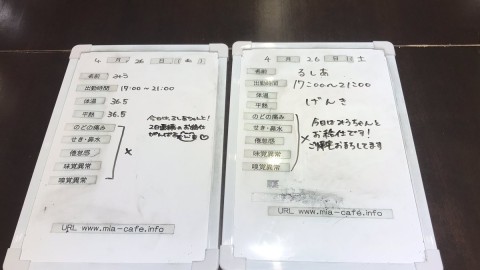 4 月 26 日 土
名前 みう
出勤時間 17:00～21:00
体温 36.5
平熱 36.5
のどの痛み
せき・鼻水
倦怠感
味覚異常
嗅覚異常
×
今日は、るしあちゃんと!
2日連続のお給仕
URL www.mia-cafe.info
4 月 26 日 土
名前 るしあ
出勤時間 17:00～21:00
体温
平熱 げんき
のどの痛み
せき・鼻水
倦怠感
味覚異常
嗅覚異常
×
今日はみうちゃんと
お給仕です!
ご帰宅おまちしてます
URL www.mia-cafe.info